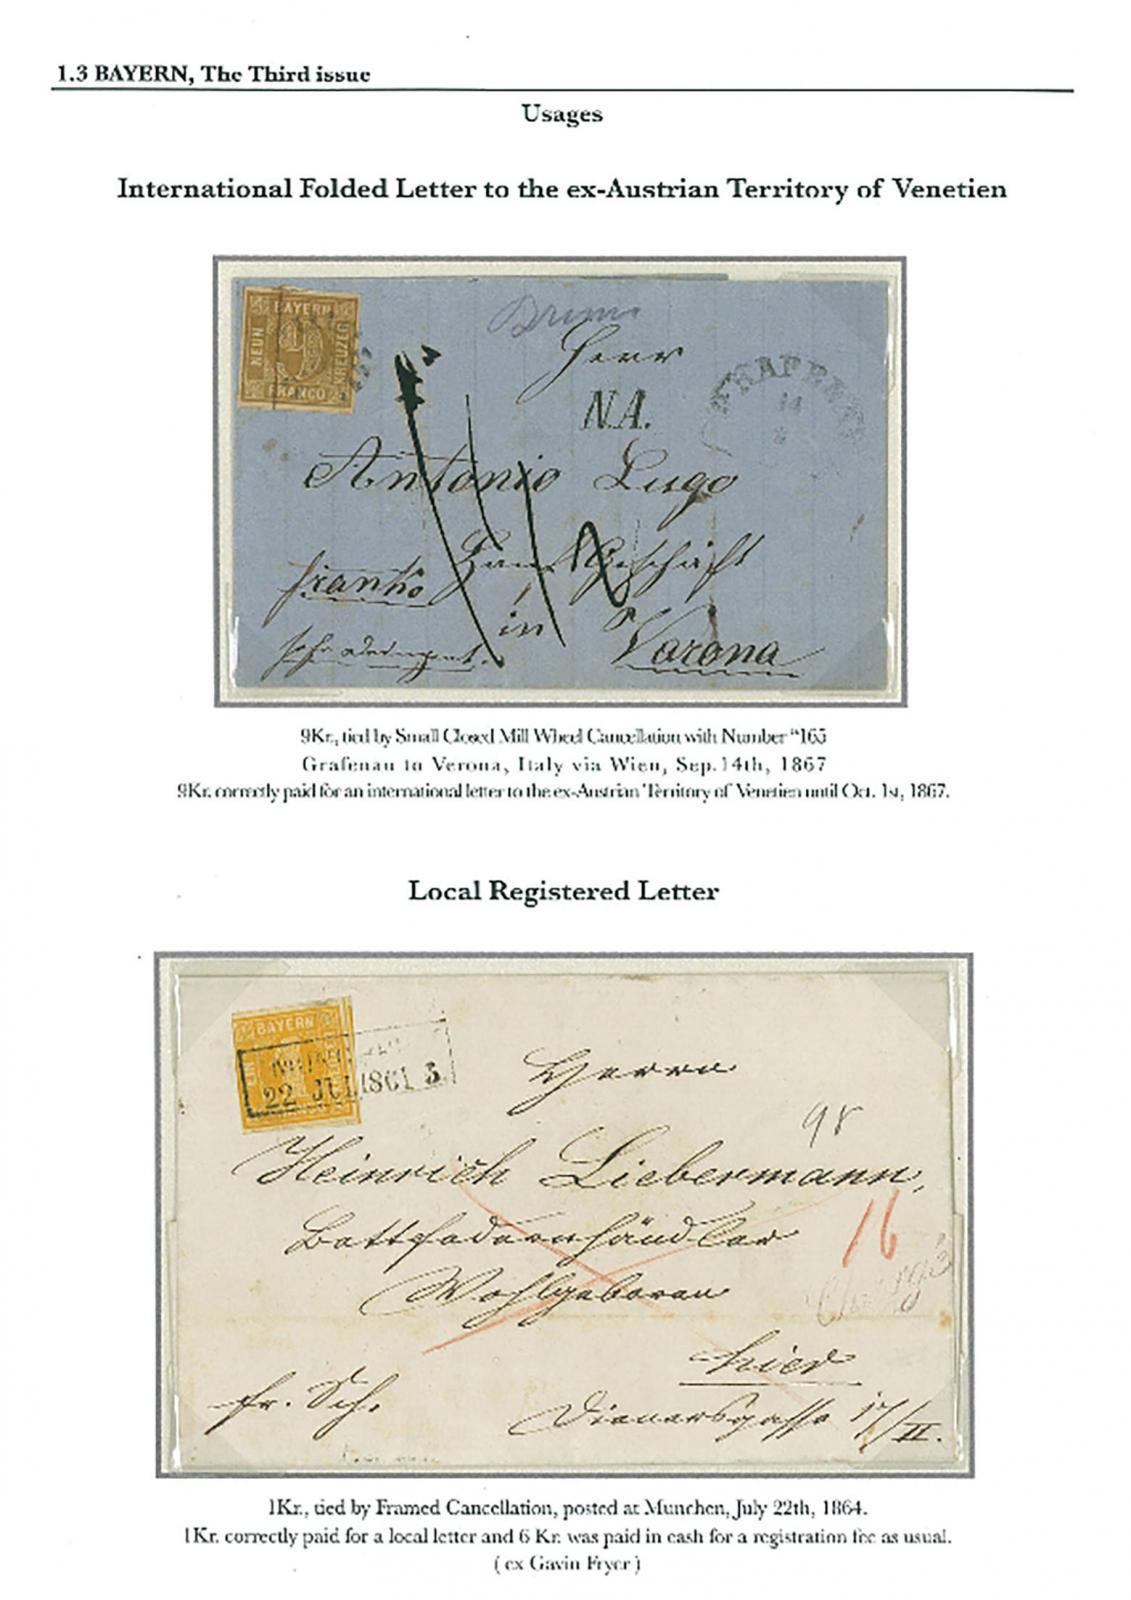 1.3 BAYERN, The Third issue
Usages
International Folded Letter to the ex-Austrian Territory of Venetien
BAYERN
NEUN
9
KREUZER
FRANCO
Herr
N.A.
14
Antonio Lugo
franko
Geschäft
in
Varona
9Kr., tied by Small Closed Mill Wheel Cancellation with Number "165
Grafenau to Verona, Italy via Wien, Sep.14th, 1867
9Kr. correctly paid for an international letter to the ex-Austrian Territory of Venetien until Oct. 1st, 1867.
Local Registered Letter
BAYERN
22 JUL 1861 3
Herrn
98
Heinrich Liebermann,
Bettfedernhändler
16
Wohlgeboren
hier
fr. Sch.
Dienersgasse 17/II.
1Kr., tied by Framed Cancellation, posted at Munchen, July 22th, 1864.
1Kr. correctly paid for a local letter and 6 Kr. was paid in cash for a registration fee as usual.
( ex Gavin Fryer )